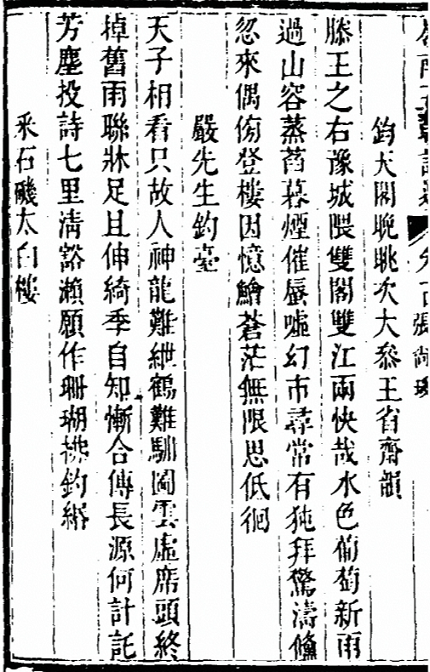 卷百 張尚瑗
鈞天閣晚眺次大叅王省齋韻
滕王之右豫城隈雙閣雙江兩快哉水色葡萄新雨
過山容蒸萏暮煙催蜃噓幻市尋常有㹠拜驚濤儵
忽來偶傍登樓因憶鱠蒼茫無限思低徊
嚴先生釣臺
天子相看只故人神龍難紲鶴難馴圖雲虛席頭終
掉舊雨聯牀足且伸綺季自知慚合傳長源何計託
芳塵投詩七里清谿瀨願作珊瑚拂釣緡
采石磯太白樓